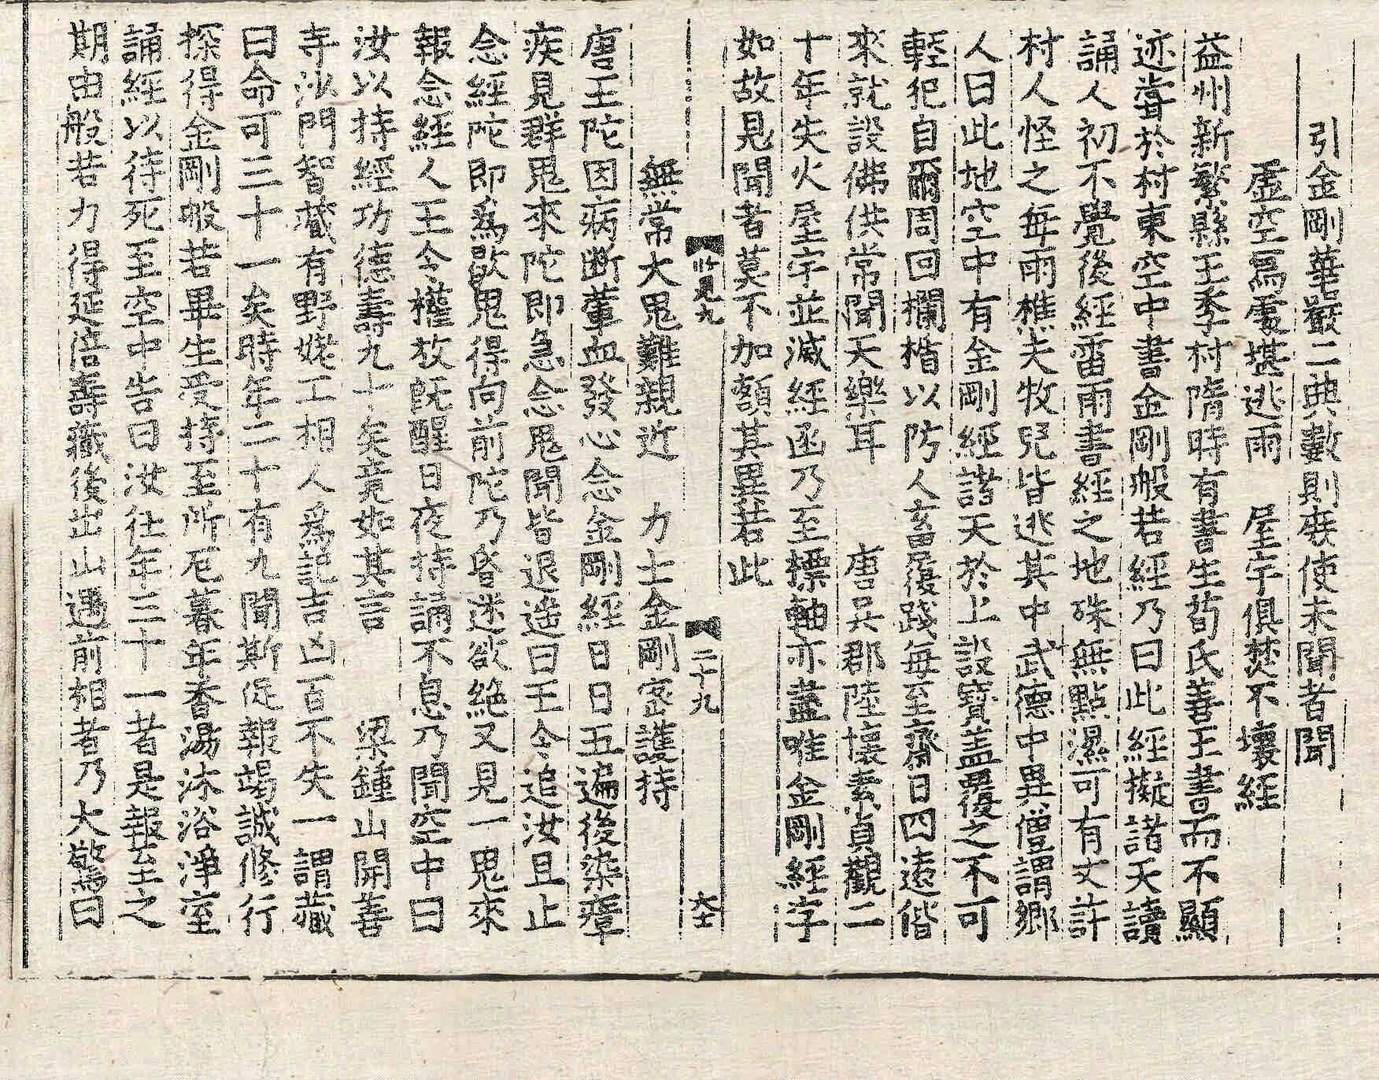 引金剛華嚴二典數則庶使未聞者聞
虛空寫處堪逃雨　屋宇俱焚不壞經
益州新繁縣王李村隋時有書生荀氏善王書而不顯
迹嘗於村東空中書金剛般若經乃曰此經擬諸天讀
誦人初不覺後經雷雨書經之地殊無點濕可有丈許
村人怪之每雨樵夫牧兒皆逃其中武德中異僧謂鄉
人曰此地空中有金剛經諸天於上設寶盖覆之不可
輕犯自爾周回欄楯以防人畜履踐每至齋日四遠偕
來就設佛供常聞天樂耳　唐吳郡陸懷素貞觀二
十年失火屋宇並滅經函乃至標軸亦盡唯金剛經字
如故見聞者莫不加額其異若此
見九　二十九　大士
無常大鬼難親近　力士金剛密護持
唐王陀因病斷葷血發心念金剛經日日五遍後染瘴
疾見群鬼來陀即急念鬼聞皆退遙曰王令追汝且止
念經陀即爲歇鬼得向前陀乃昏迷欲絶又見一鬼來
報念經人王令權放旣醒日夜持誦不息乃聞空中曰
汝以持經功德壽九十矣竟如其言　梁鍾山開善
寺沙門智藏有野姥工相人爲記吉凶百不失一謂藏
曰命可三十一矣時年二十有九聞斯促報竭誠修行
探得金剛般若畢生受持至所厄暮年香湯沐浴淨室
誦經以待死至空中告曰汝往年三十一者是報至之
期由般若力得延倍壽藏後出山遇前相者乃大驚曰